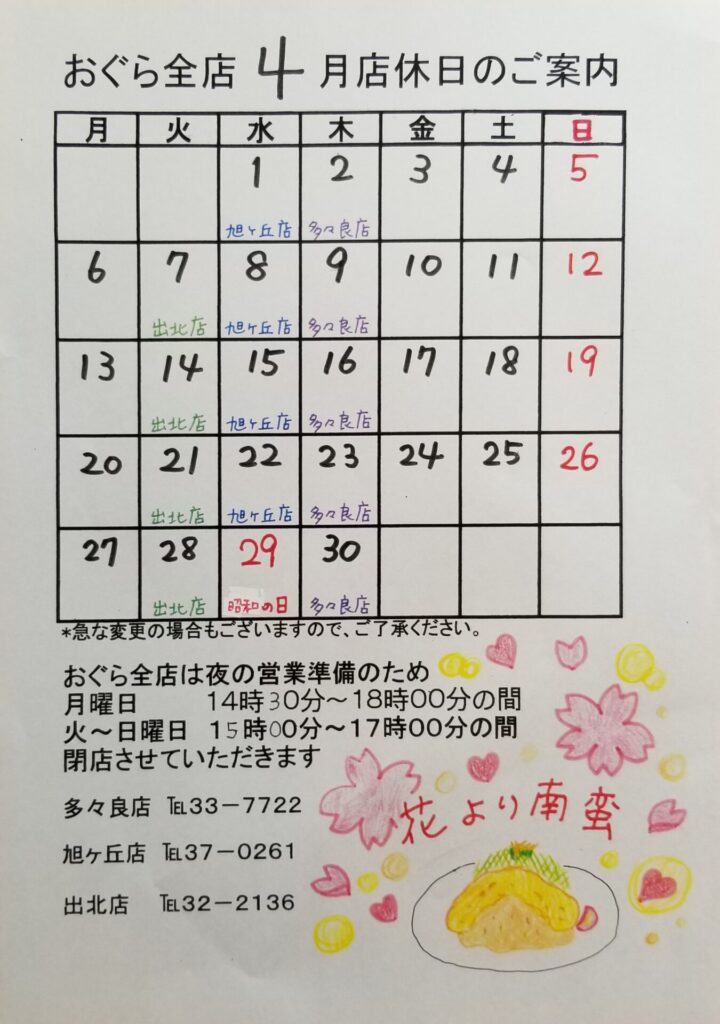 おぐら全店 4 月店休日のご案内
月 火 水 木 金 土 日
1 2 3 4 5
旭ヶ丘店 多々良店
6 7 8 9 10 11 12
出北店 旭ヶ丘店 多々良店
13 14 15 16 17 18 19
出北店 旭ヶ丘店 多々良店
20 21 22 23 24 25 26
出北店 旭ヶ丘店 多々良店
27 28 29 30
出北店 昭和の日 多々良店
*急な変更の場合もございますので、ご了承ください。
おぐら全店は夜の営業準備のため
月曜日 14時30分～18時00分の間
火～日曜日 15時00分～17時00分の間
閉店させていただきます
多々良店 ℡33－7722
旭ヶ丘店 ℡37－0261
出北店 ℡32－2136
花より南蛮